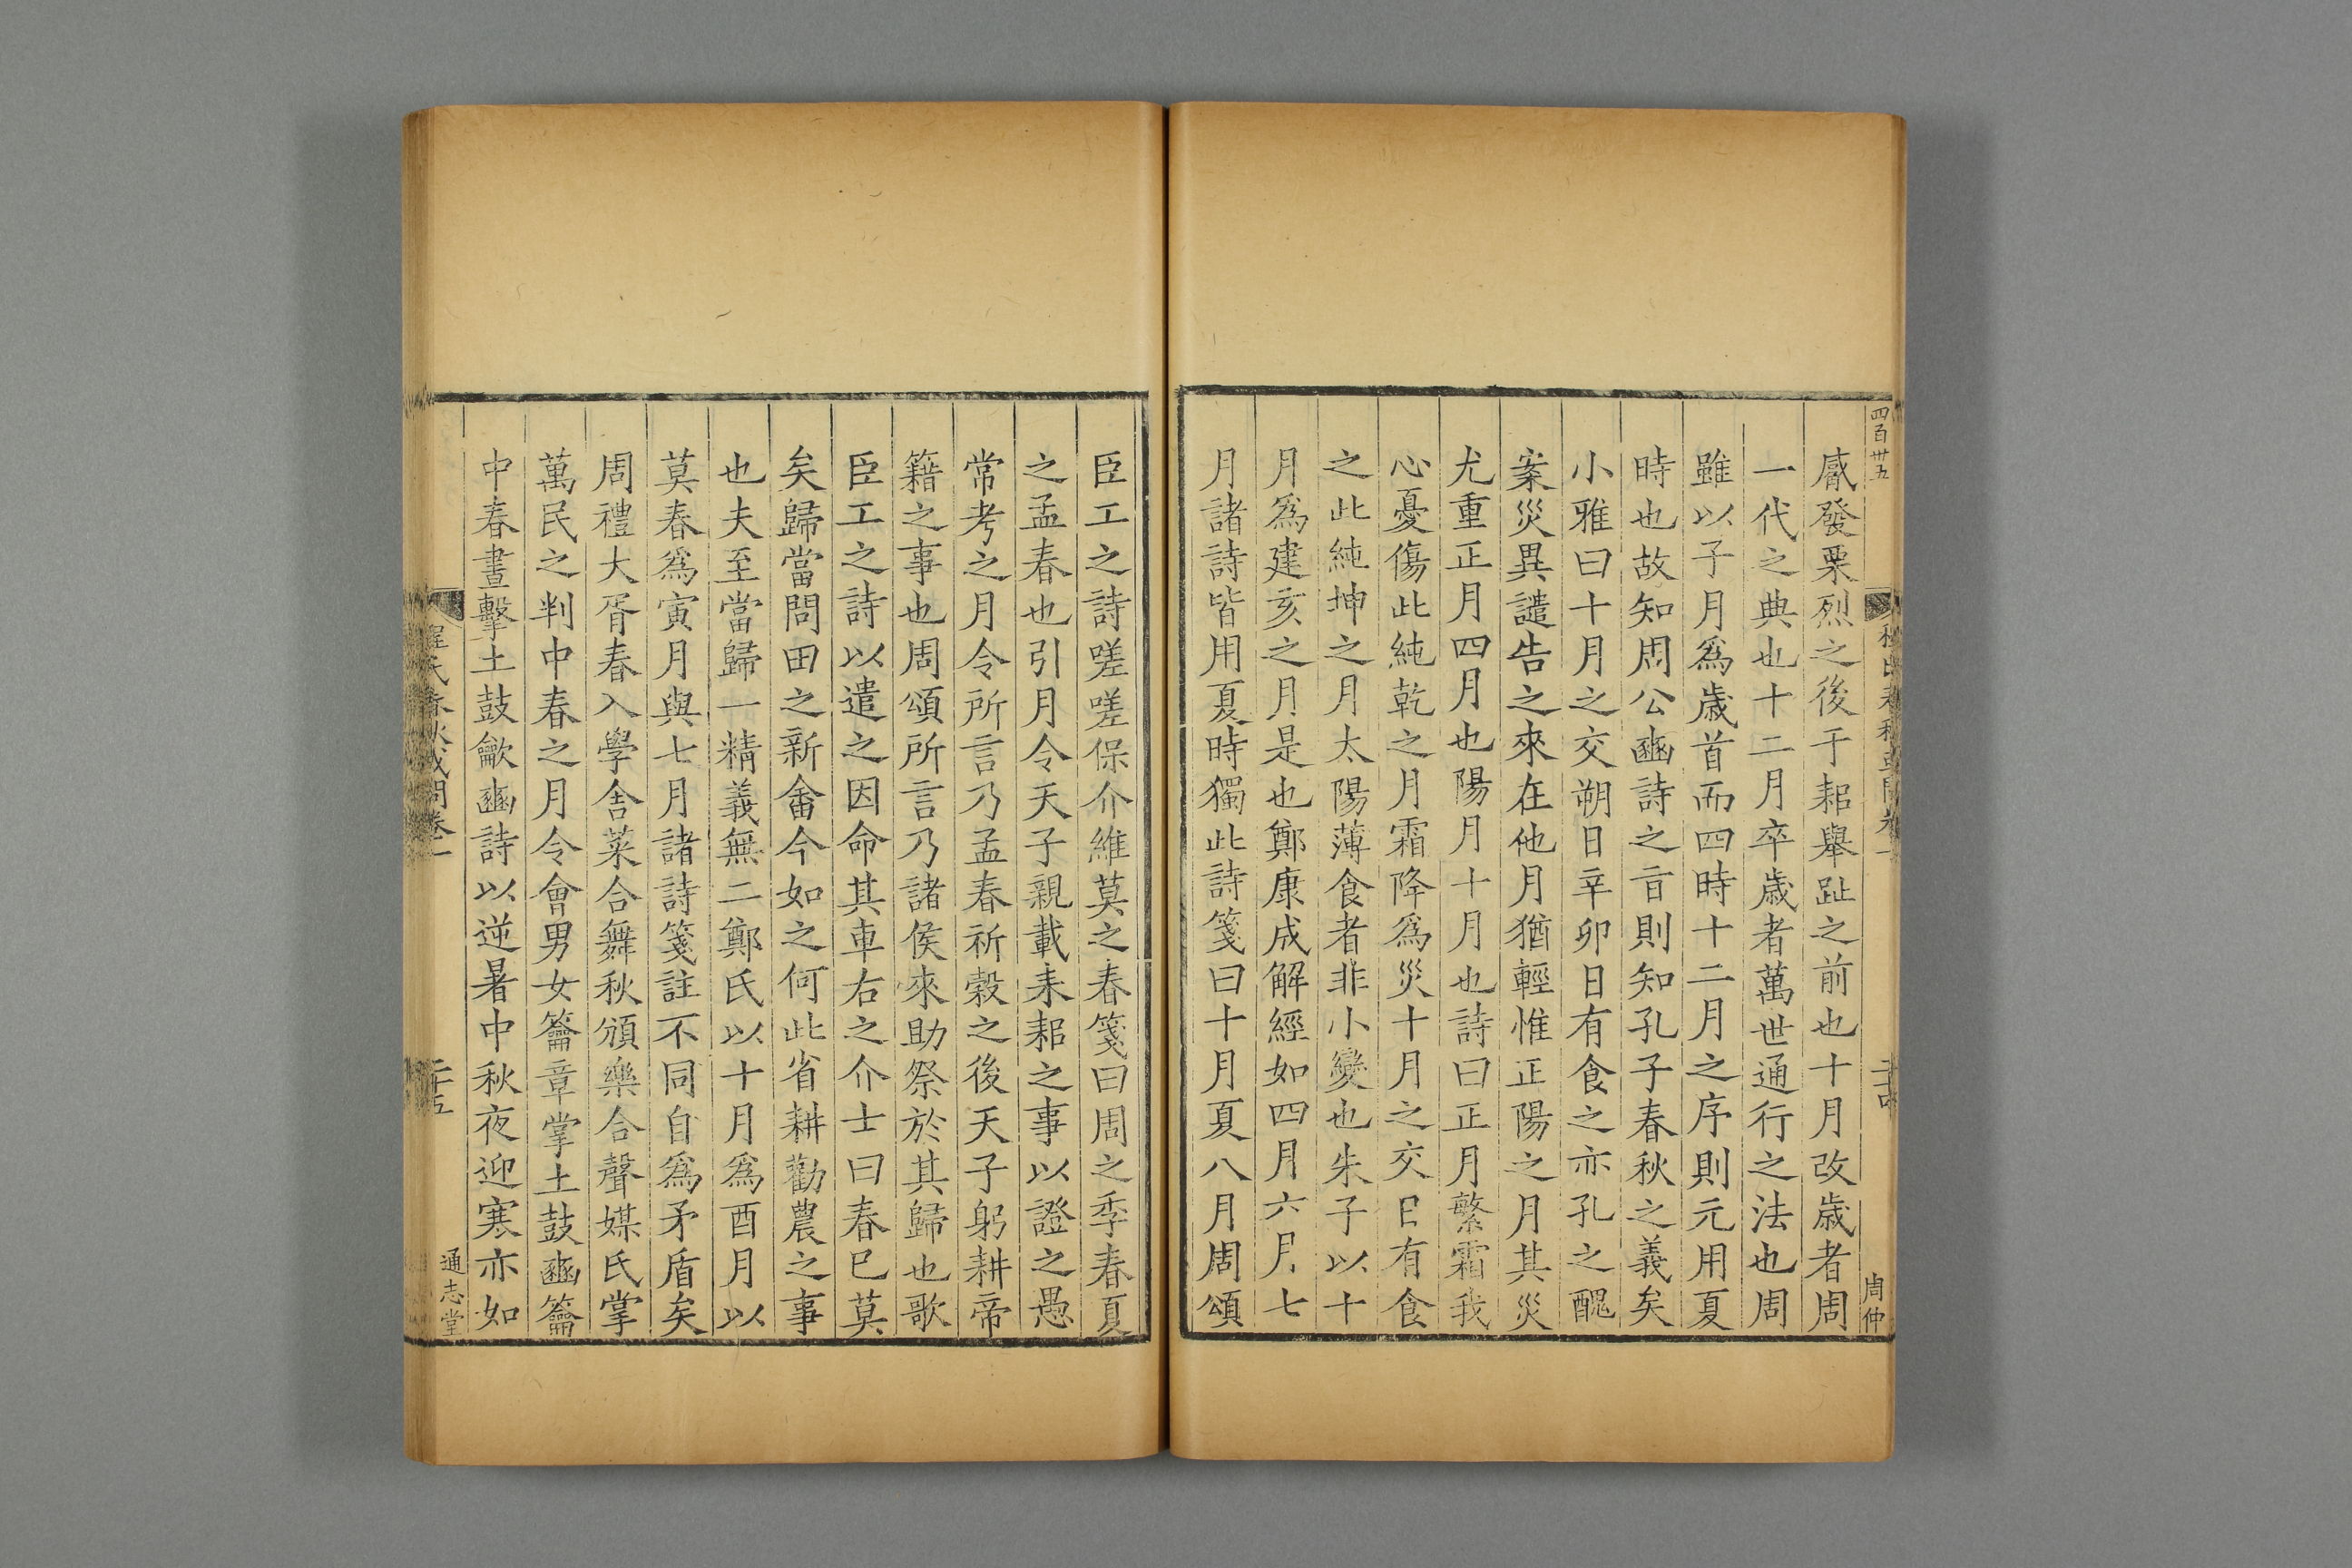 四百卅五
周仲
觱發栗烈之後于耜舉趾之前也十月改歳者周
一代之典也十二月卒歳者萬世通行之法也周
雖以子月爲歳首而四時十二月之序則元用夏
時也故知周公豳詩之㫖則知孔子春秋之義矣
小雅曰十月之交朔日辛卯日有食之亦孔之醜
案災異譴告之來在他月猶輕惟正陽之月其災
尤重正月四月也陽月十月也詩曰正月繁霜我
心憂傷此純乾之月霜降爲災十月之交日有食
之此純坤之月太陽薄食者非小變也朱子以十
月爲建亥之月是也鄭康成解經如四月六月七
月諸詩皆用夏時獨此詩箋曰十月夏八月周頌
臣工之詩嗟嗟保介維莫之春箋曰周之季春夏
之孟春也引月令天子親載耒耜之事以證之愚
常考之月令所言乃孟春祈穀之後天子躬耕帝
籍之事也周頌所言乃諸侯來助祭於其歸也歌
臣工之詩以遣之因命其車右之介士曰春巳莫
矣歸當問田之新畬今如之何此省耕勸農之事
也夫至當歸一精義無二鄭氏以十月爲酉月以
莫春爲寅月與七月諸詩箋註不同自爲矛盾矣
周禮大胥春入學舎菜合舞秋頒樂合聲媒氏掌
萬民之判中春之月令會男女籥章掌土鼓豳籥
中春晝擊土鼓龡豳詩以逆暑中秋夜迎寒亦如
程氏春秋或問卷一
二十五
通志堂